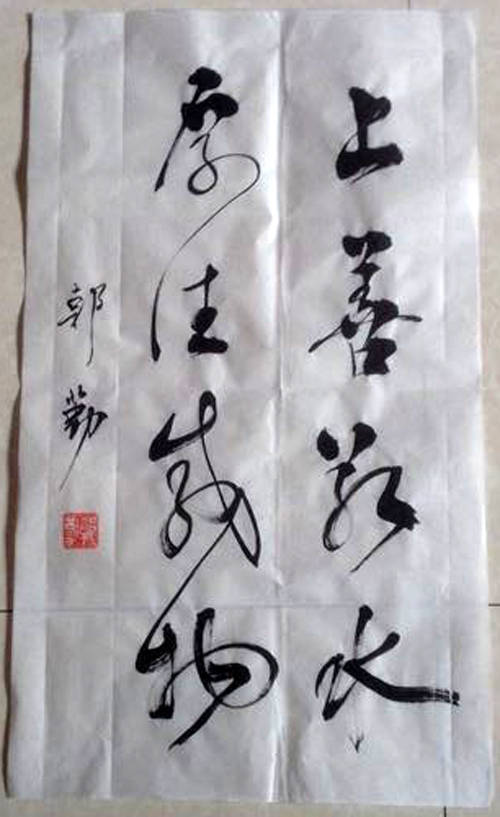 上善若水
厚德载物
郭勤